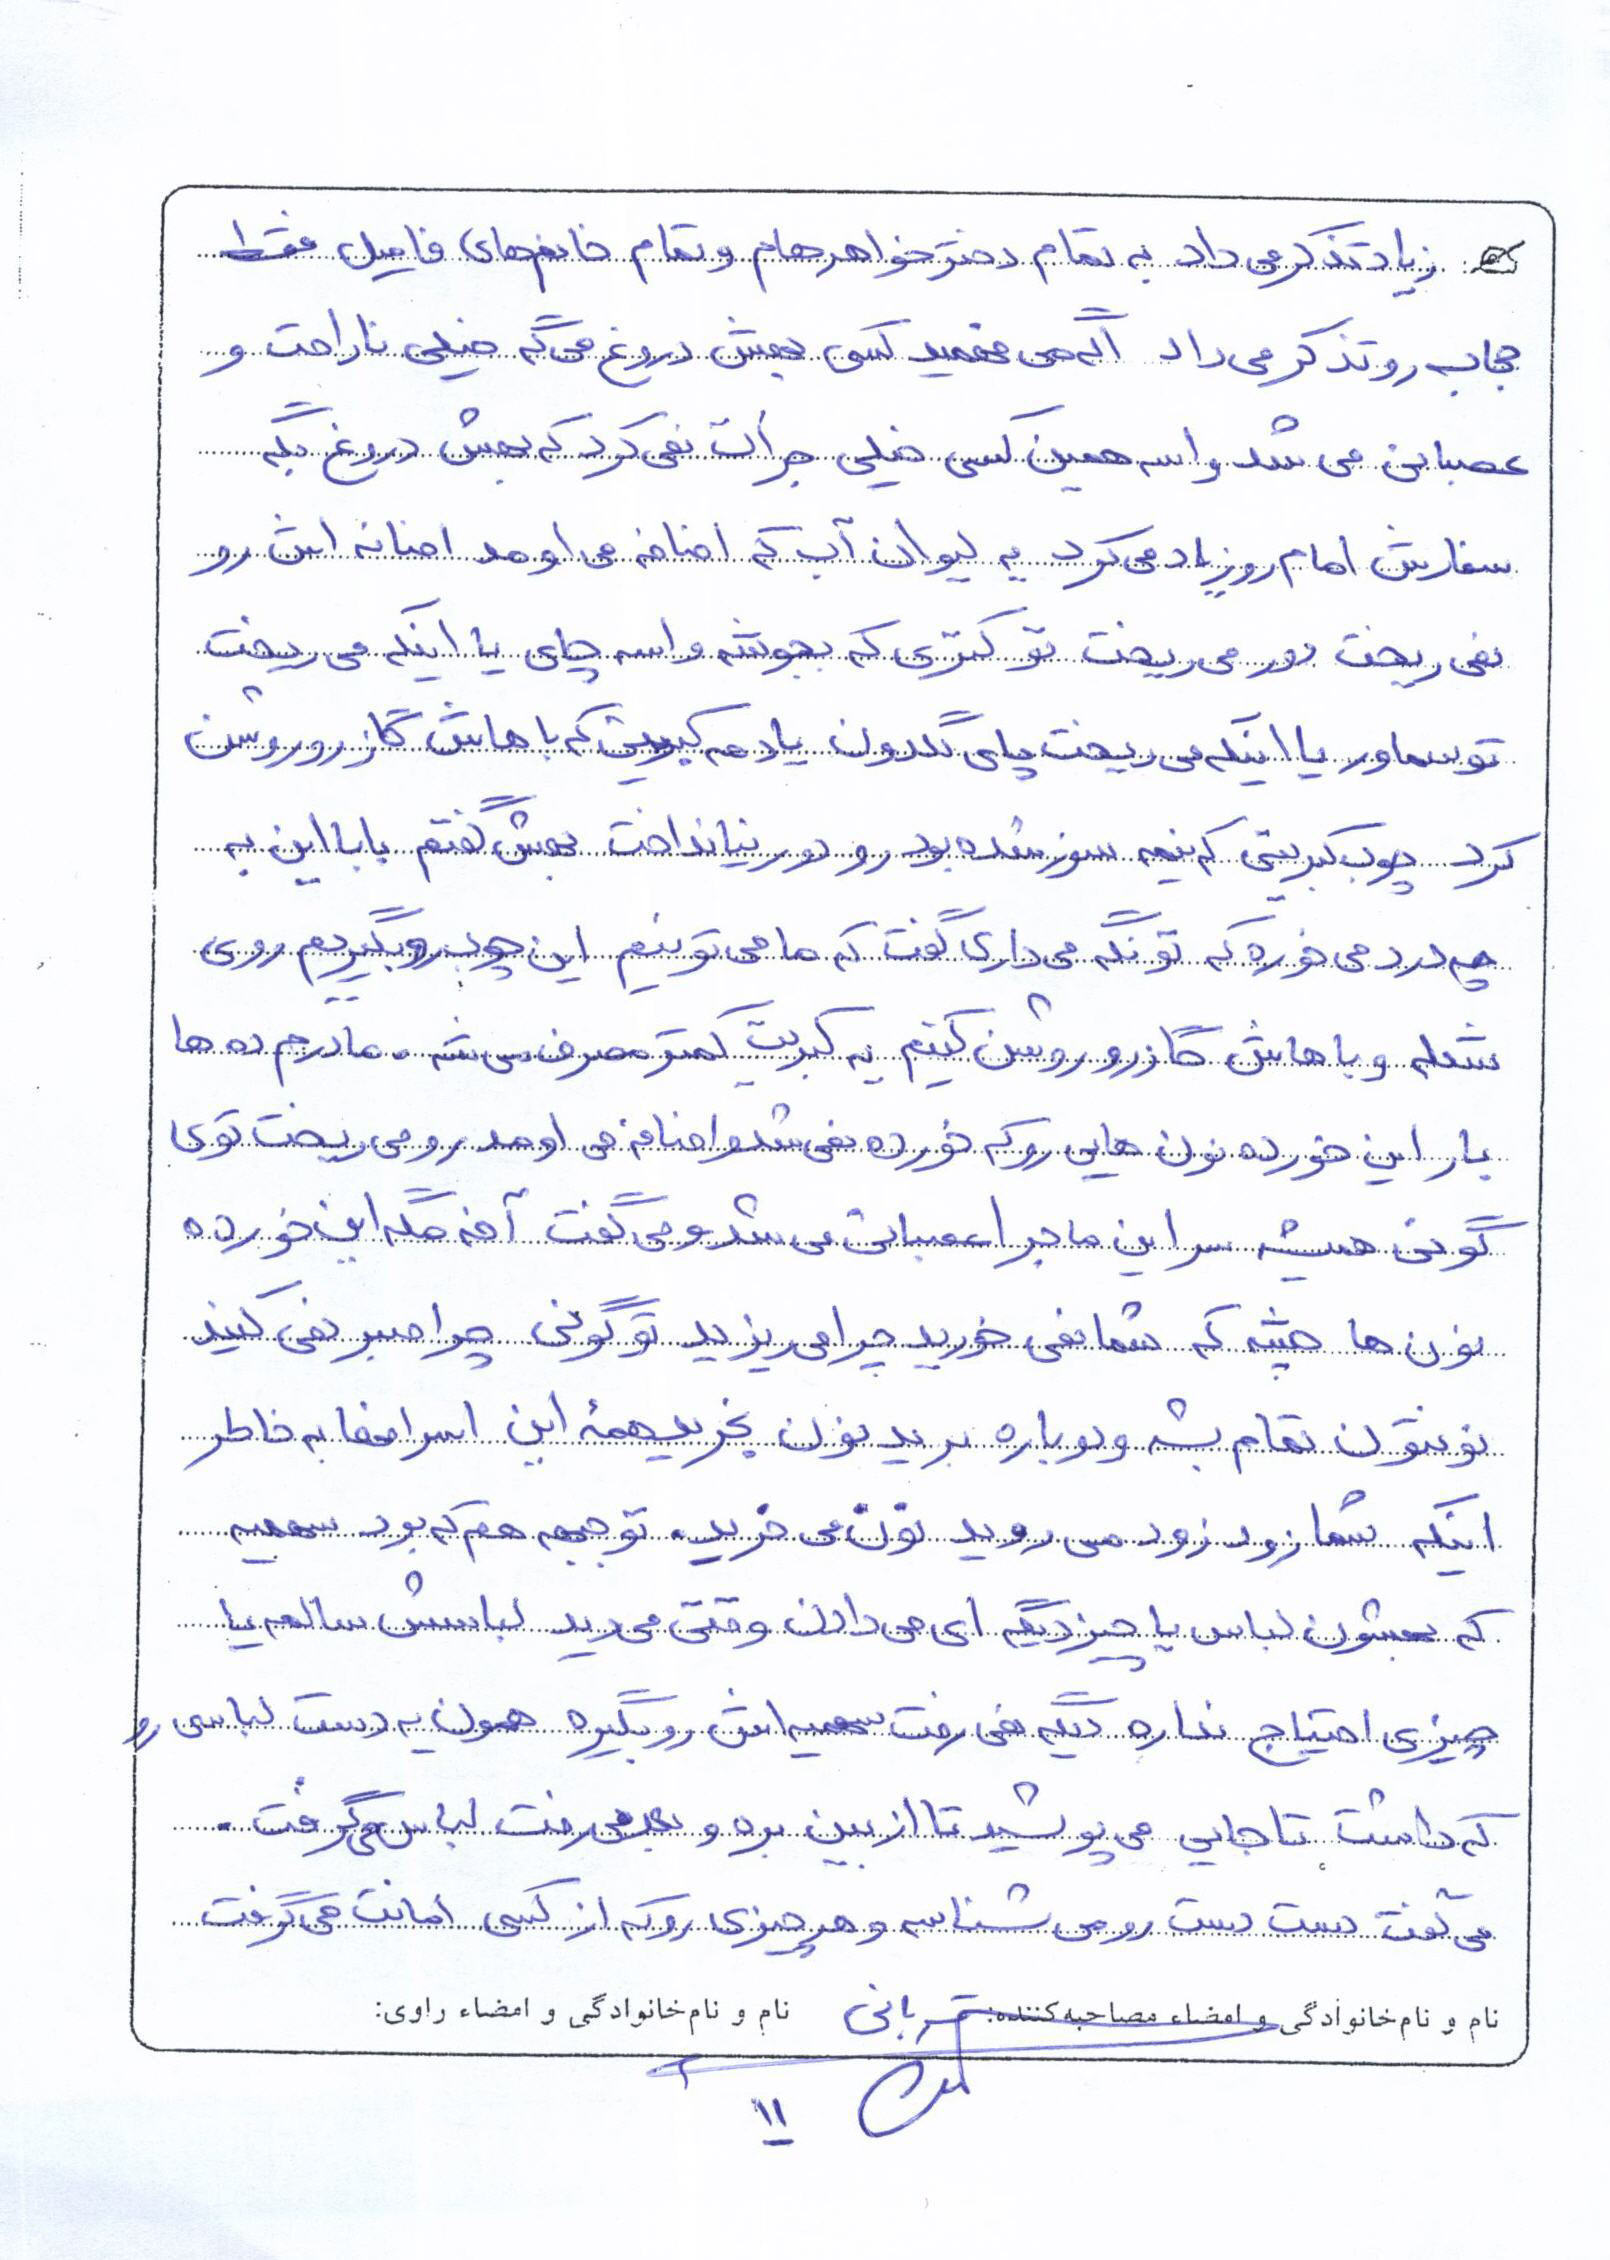 زیاد تذکر می داد به تمام دختر خواهرهام و تمام خانم‌های فامیل فقط
حجاب رو تذکر می داد اگه می فهمید کسی بهش دروغ می گه خیلی ناراحت و
عصبانی می شد واسه همین کسی خیلی جرأت نمی کرد که بهش دروغ بگه
سفارش امام رو زیاد می کرد یه لیوان آب که اضافه می اومد اضافه اش رو
نمی ریخت دور می ریخت تو کتری که بجوشه واسه چای یا اینکه می ریخت
تو سماور یا اینکه می ریخت پای گلدون یادمه کبریتی که باهاش گاز رو روشن
کرد چوب کبریتی که نیمه سوز شده بود رو دور نیانداخت بهش گفتم بابا این به
چه درد می خوره که تو نگه می داری گفت که ما می تونیم این چوب رو بگیریم روی
شعله و باهاش گاز رو روشن کنیم یه کبریت کمتر مصرف می شه . مادرم ده ها
بار این خورده نون هایی رو که خورده نمی شد و اضافه می اومد رو می ریخت توی
گونی همیشه سر این ماجرا عصبانی می شد و می گفت آخه مگه این خورده
نون ها چشه که شما نمی خورید چرا می ریزید تو گونی چرا صبر نمی کنید
نونتون تمام بشه و دوباره برید نون بخرید همهٔ این اسرافها به خاطر
اینکه شما زود زود می روید نون می خرید . تو جبهه هم که بود سهمیه
که بهشون لباس یا چیز دیگه ای می دادن وقتی می دید لباسش سالمه یا
چیزی احتیاج نداره دیگه نمی رفت سهمیه اش رو بگیره همون یه دست لباسی رو
که داشت تا جایی می پوشید تا از بین بره و بعد می رفت لباس می گرفت .
می گفت دست دست رو می شناسه و هر چیزی رو که از کسی امانت می گرفت
نام و نام‌خانوادگی و امضاء مصاحبه‌کننده: قربانی نام و نام‌خانوادگی و امضاء راوی:
۱۱